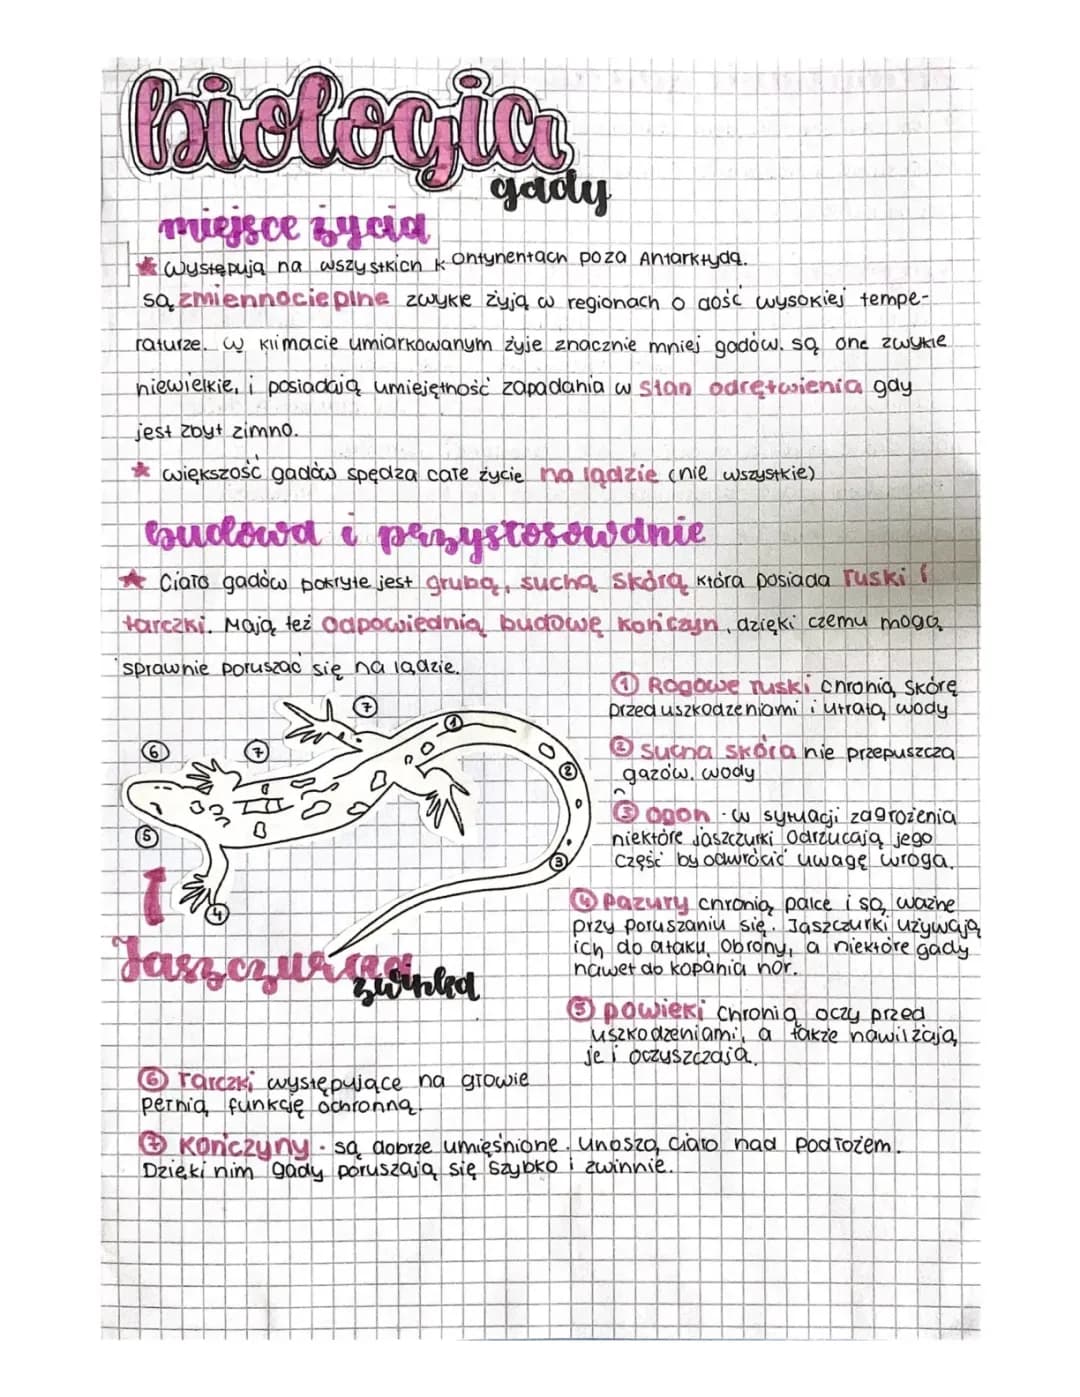 biologia
gady
miejsce życia
★ Występują na wszystkich kontynentach poza Antarktydą.
są zmiennocieplne zwykle żyją w regionach o dość wysokiej tempe-
raturze. W klimacie umiarkowanym żyje znacznie mniej gadów. są one zwykle
niewielkie, i posiadają umiejętność zapadania w stan odrętwienia gdy
jest zbyt zimno.
★ większość gadów spędza całe życie na lądzie (nie wszystkie)
budowa i przystosowanie
★ Ciało gadów pokryte jest grubą, suchą skórą która posiada łuski i
tarczki. Mają też odpowiednią budowę kończyn, dzięki czemu mogą
sprawnie poruszać się na lądzie.
① Rogowe łuski chronią skórę
przed uszkodzeniami i utratą wody
② sucha skóra nie przepuszcza
gazów. wody
③ ogon - w sytuacji zagrożenia
niektóre jaszczurki odrzucają jego
część by odwrócić uwagę wroga.
④ pazury chronią palce i są ważne
przy poruszaniu się. Jaszczurki używają
ich do ataku, obrony, a niektóre gady
nawet do kopania nor.
⑤ powieki chronią oczy przed
uszkodzeniami, a także nawilżają
je i oczyszczają.
7
1
6
7
2
5
3
4
Jaszczurka
zwinka
⑥ Tarczki występujące na głowie
pełnią funkcję ochronną.
⑦ Kończyny - są dobrze umięśnione. Unoszą ciało nad podłożem.
Dzięki nim gady poruszają się szybko i zwinnie.